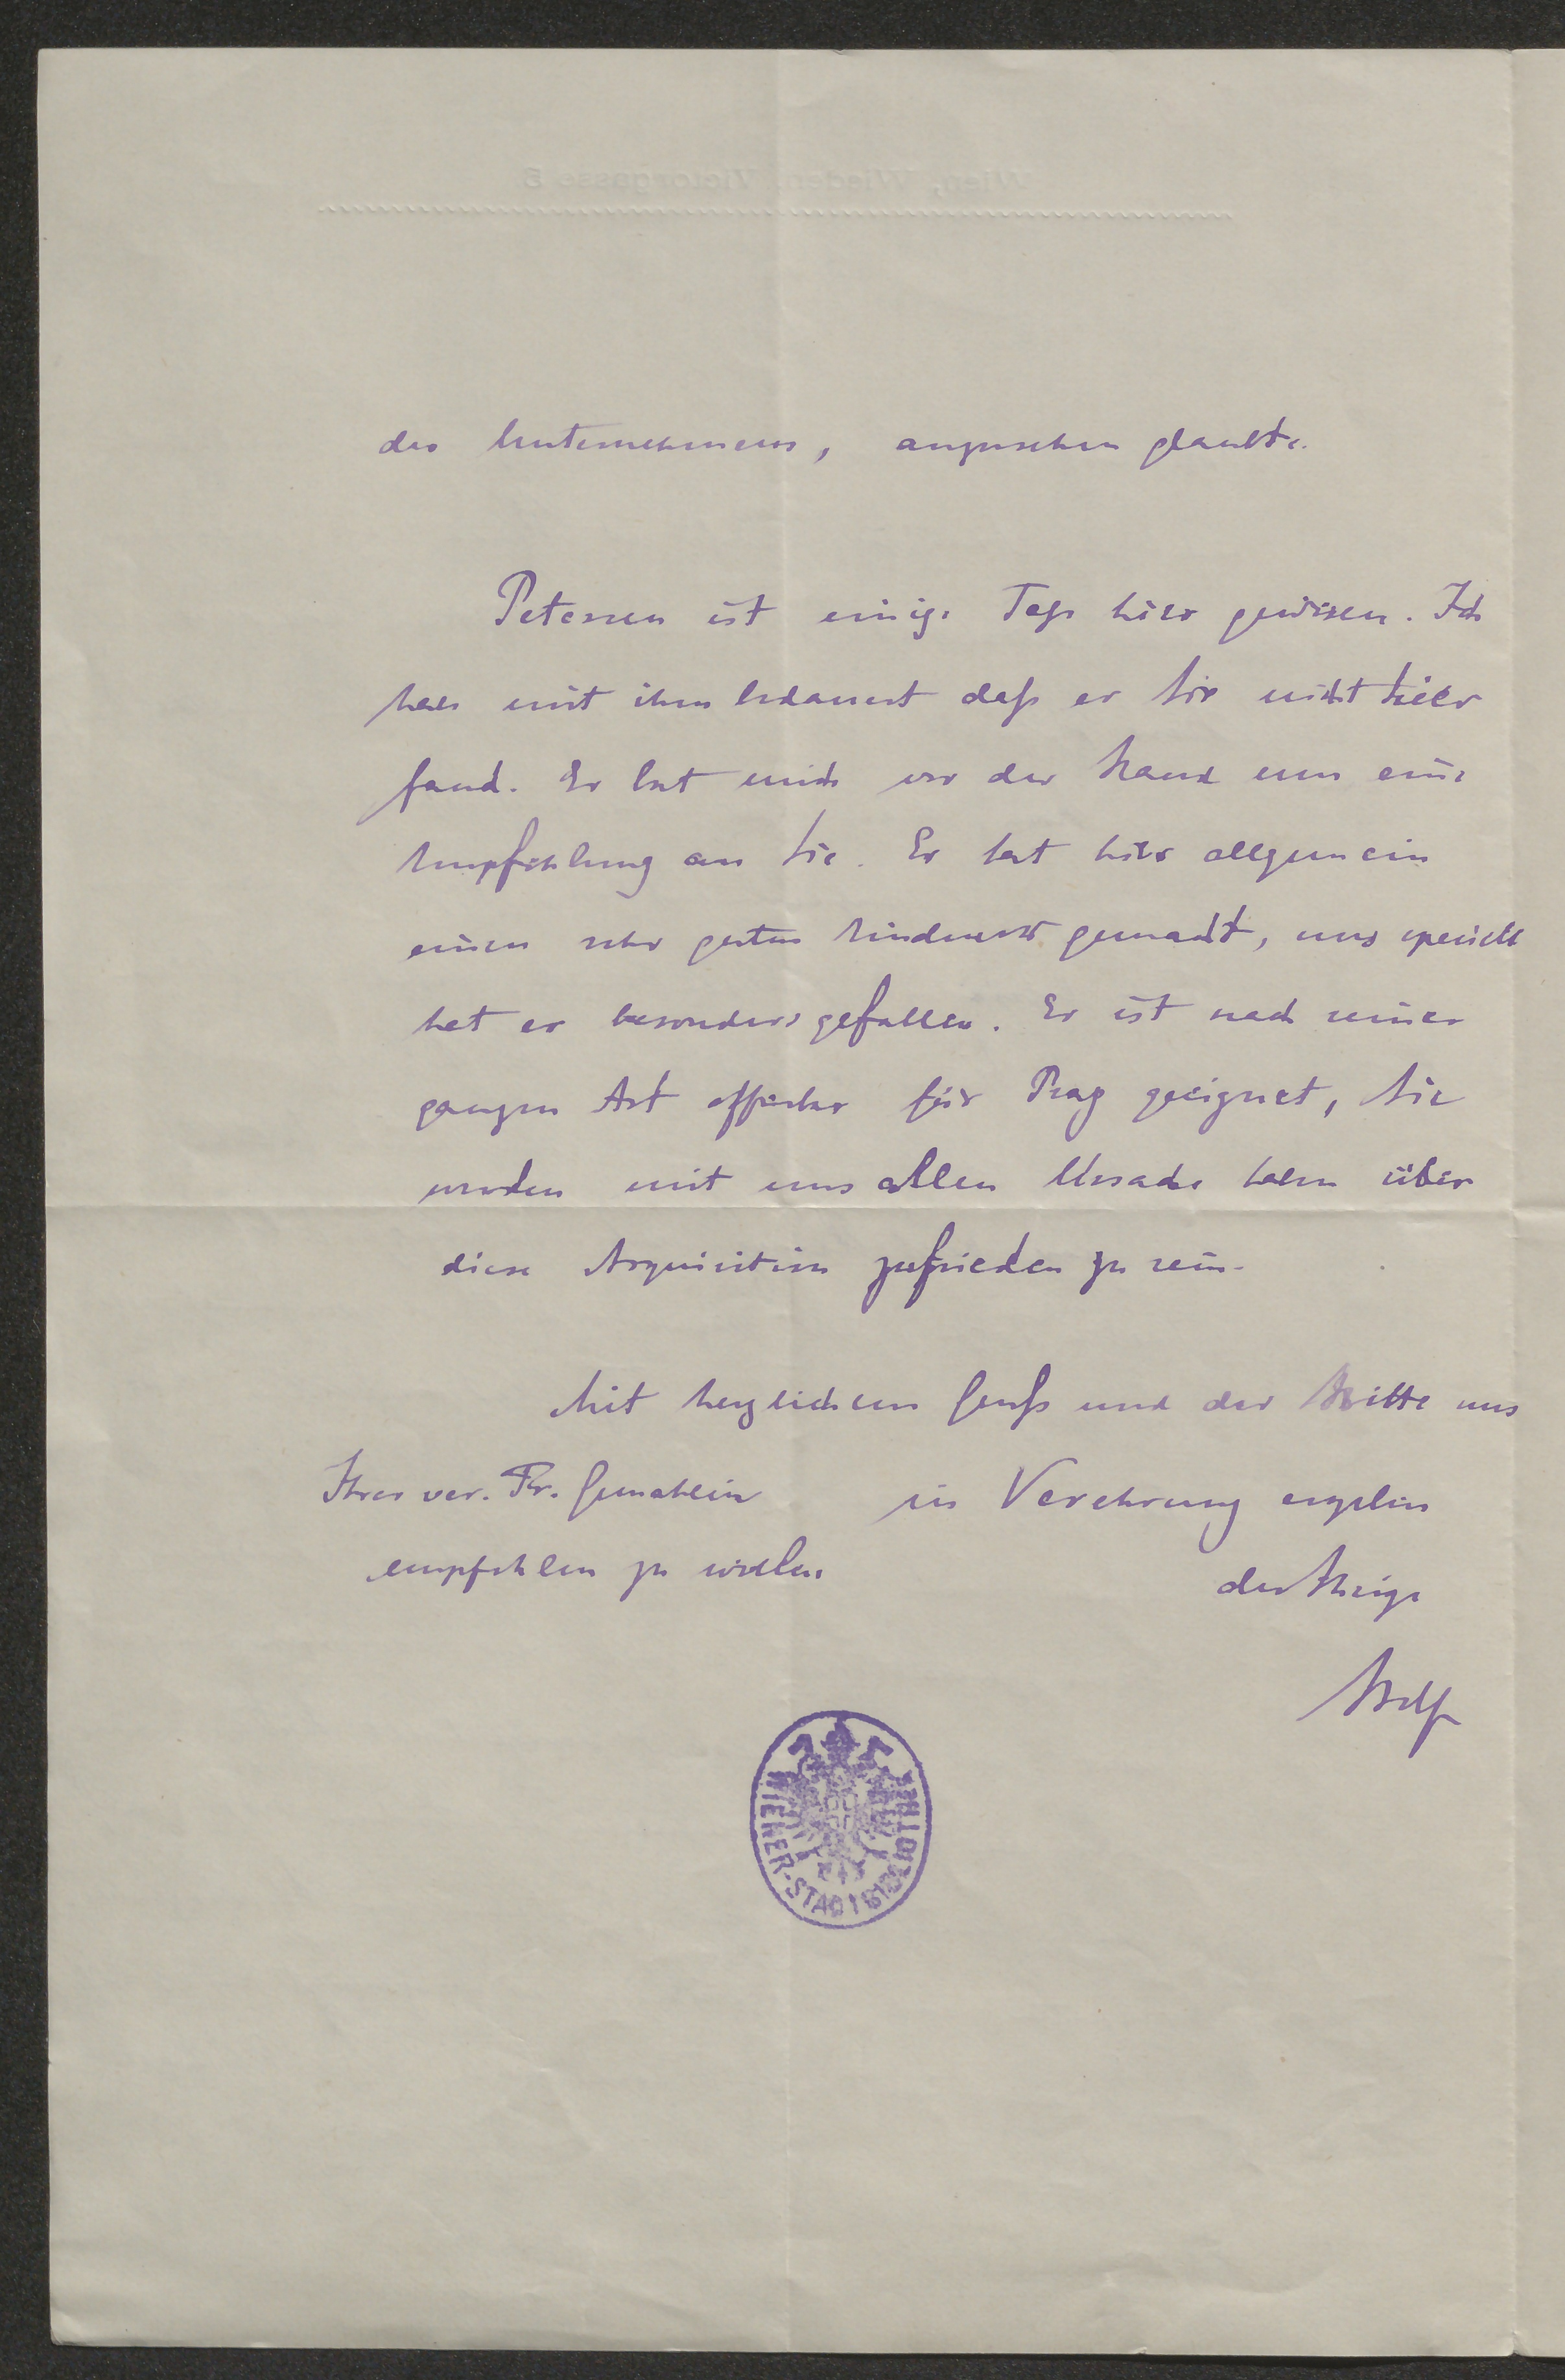 Wien, Wieden, Victorgasse 5
des Unternehmens, anzusehen glaubte.
Petersen ist einige Tage hier gewesen. Ich
habe mit ihm bedauert daß er Sie nicht hier
fand. Er bat mich vor der Hand um eine
Empfehlung an Sie. Er hat hier allgemein
einen sehr guten Eindruck gemacht, uns speciell
hat er besonders gefallen. Er ist nach seiner
ganzen Art offenbar für Prag geeignet, Sie
werden mit uns allen Ursache haben über
diese Acquisition zufrieden zu sein.
Mit herzlichem Gruß und der Bitte uns
Ihrer ver. Fr. Gemahlin in Verehrung ergeben
empfehlen zu wollen
der Ihrige
WIENER-STADTBIBLIOTHEK